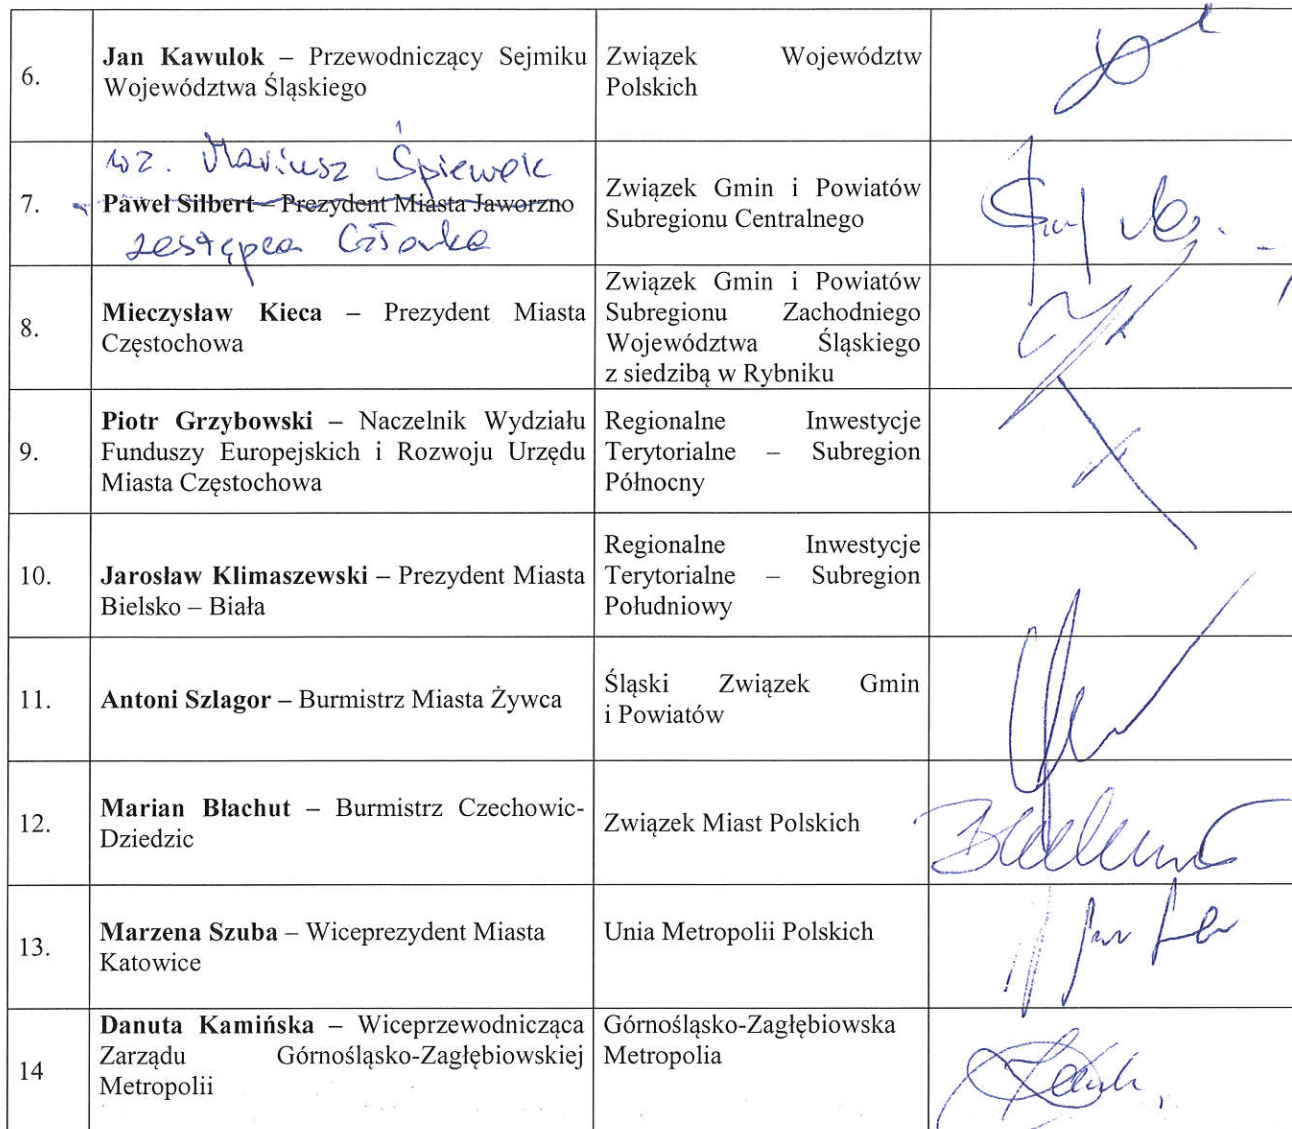 6.
Jan Kawulok – Przewodniczący Sejmiku
Województwa Śląskiego
Związek Województw
Polskich
wz. Mariusz Śpiewok
7.
Paweł Silbert – Prezydent Miasta Jaworzno
zastępca Członka
Związek Gmin i Powiatów
Subregionu Centralnego
8.
Mieczysław Kieca – Prezydent Miasta
Częstochowa
Związek Gmin i Powiatów
Subregionu Zachodniego
Województwa Śląskiego
z siedzibą w Rybniku
9.
Piotr Grzybowski – Naczelnik Wydziału
Funduszy Europejskich i Rozwoju Urzędu
Miasta Częstochowa
Regionalne Inwestycje
Terytorialne – Subregion
Północny
10.
Jarosław Klimaszewski – Prezydent Miasta
Bielsko – Biała
Regionalne Inwestycje
Terytorialne – Subregion
Południowy
11.
Antoni Szlagor – Burmistrz Miasta Żywca
Śląski Związek Gmin
i Powiatów
12.
Marian Błachut – Burmistrz Czechowic-
Dziedzic
Związek Miast Polskich
13.
Marzena Szuba – Wiceprezydent Miasta
Katowice
Unia Metropolii Polskich
14
Danuta Kamińska – Wiceprzewodnicząca
Zarządu Górnośląsko-Zagłębiowskiej
Metropolii
Górnośląsko-Zagłębiowska
Metropolia